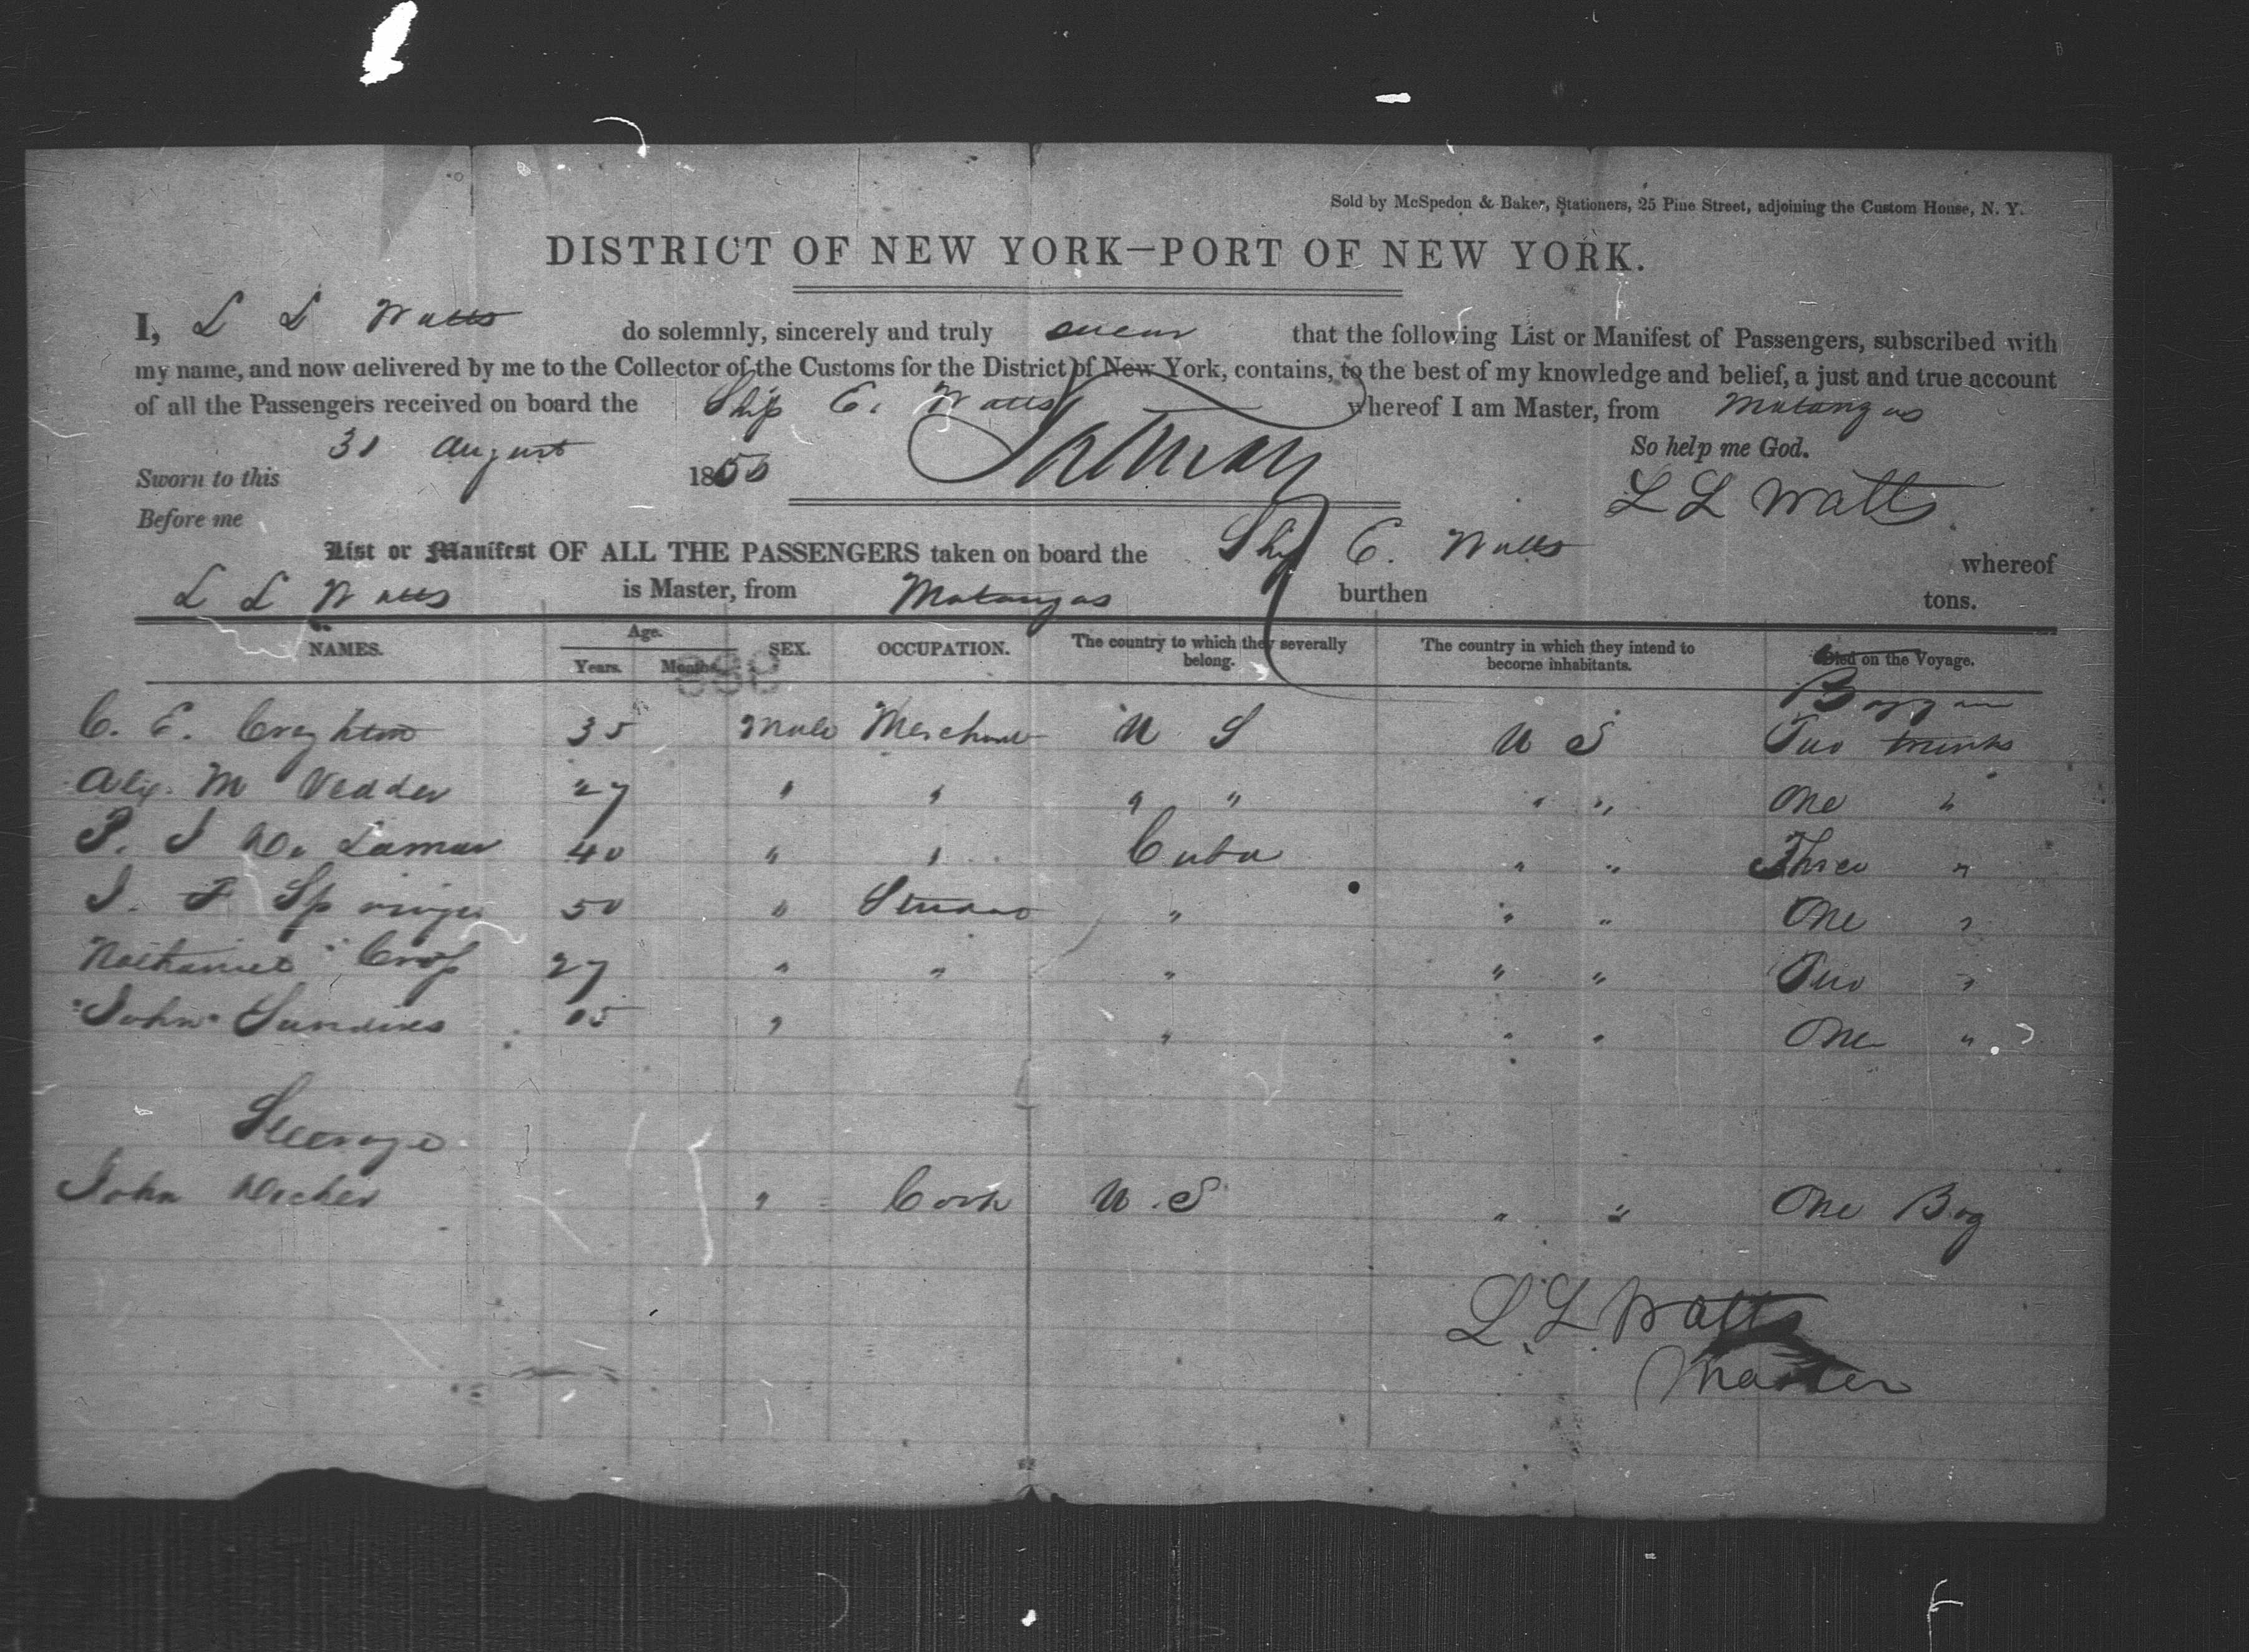 Sold by McSpedon & Baker, Stationers, 25 Pine Street, adjoining the Custom House, N. Y.
DISTRICT OF NEW YORK—PORT OF NEW YORK.
I, L L Watts do solemnly, sincerely and truly swear that the following List or Manifest of Passengers, subscribed with
my name, and now delivered by me to the Collector of the Customs for the District of New York, contains, to the best of my knowledge and belief, a just and true account
of all the Passengers received on board the Ship E. Watts whereof I am Master, from Matanzas
So help me God.
Sworn to this 31 August 1850
L L Watts
Before me
List or Manifest OF ALL THE PASSENGERS taken on board the Ship E. Watts whereof
L L Watts is Master, from Matanzas burthen tons.
NAMES. Age. Years. Months. SEX. OCCUPATION. The country to which they severally belong. The country in which they intend to become inhabitants. Died on the Voyage.
C. E. Creghton 35 Male Merchant U S U S Two trunks
Alex. M Vedder 27 " " " " " " One "
P. J De Lamar 40 " " Cuba " " Three "
J. F Springer 50 " " " " One "
Nathaniel Cross 27 " " " " " Two "
John Sandines 15 " " " " One "
Steerage
John Decker " Cook U.S " " One Bag
L. L Watts
Master